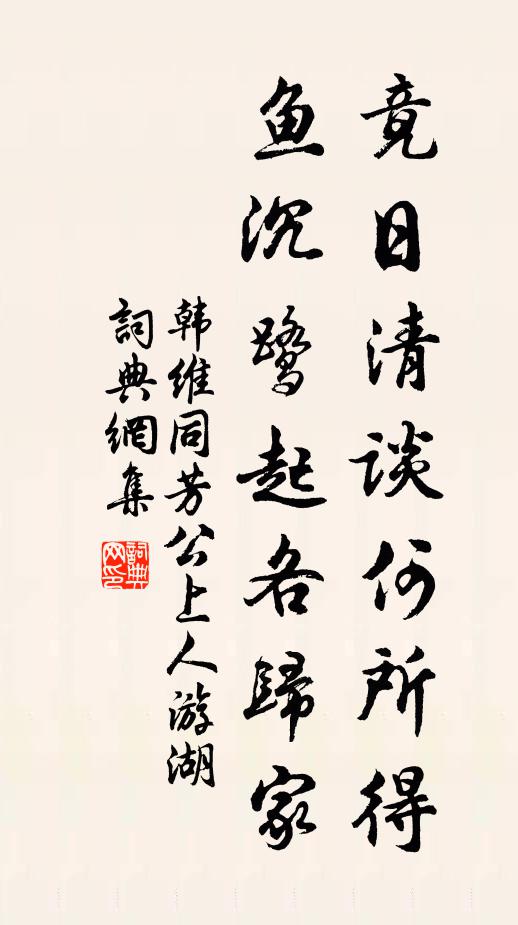 竟日清談何所得
魚沉鷺起各歸家
韩維同芳公上人游湖
詞典網集
詞典网印